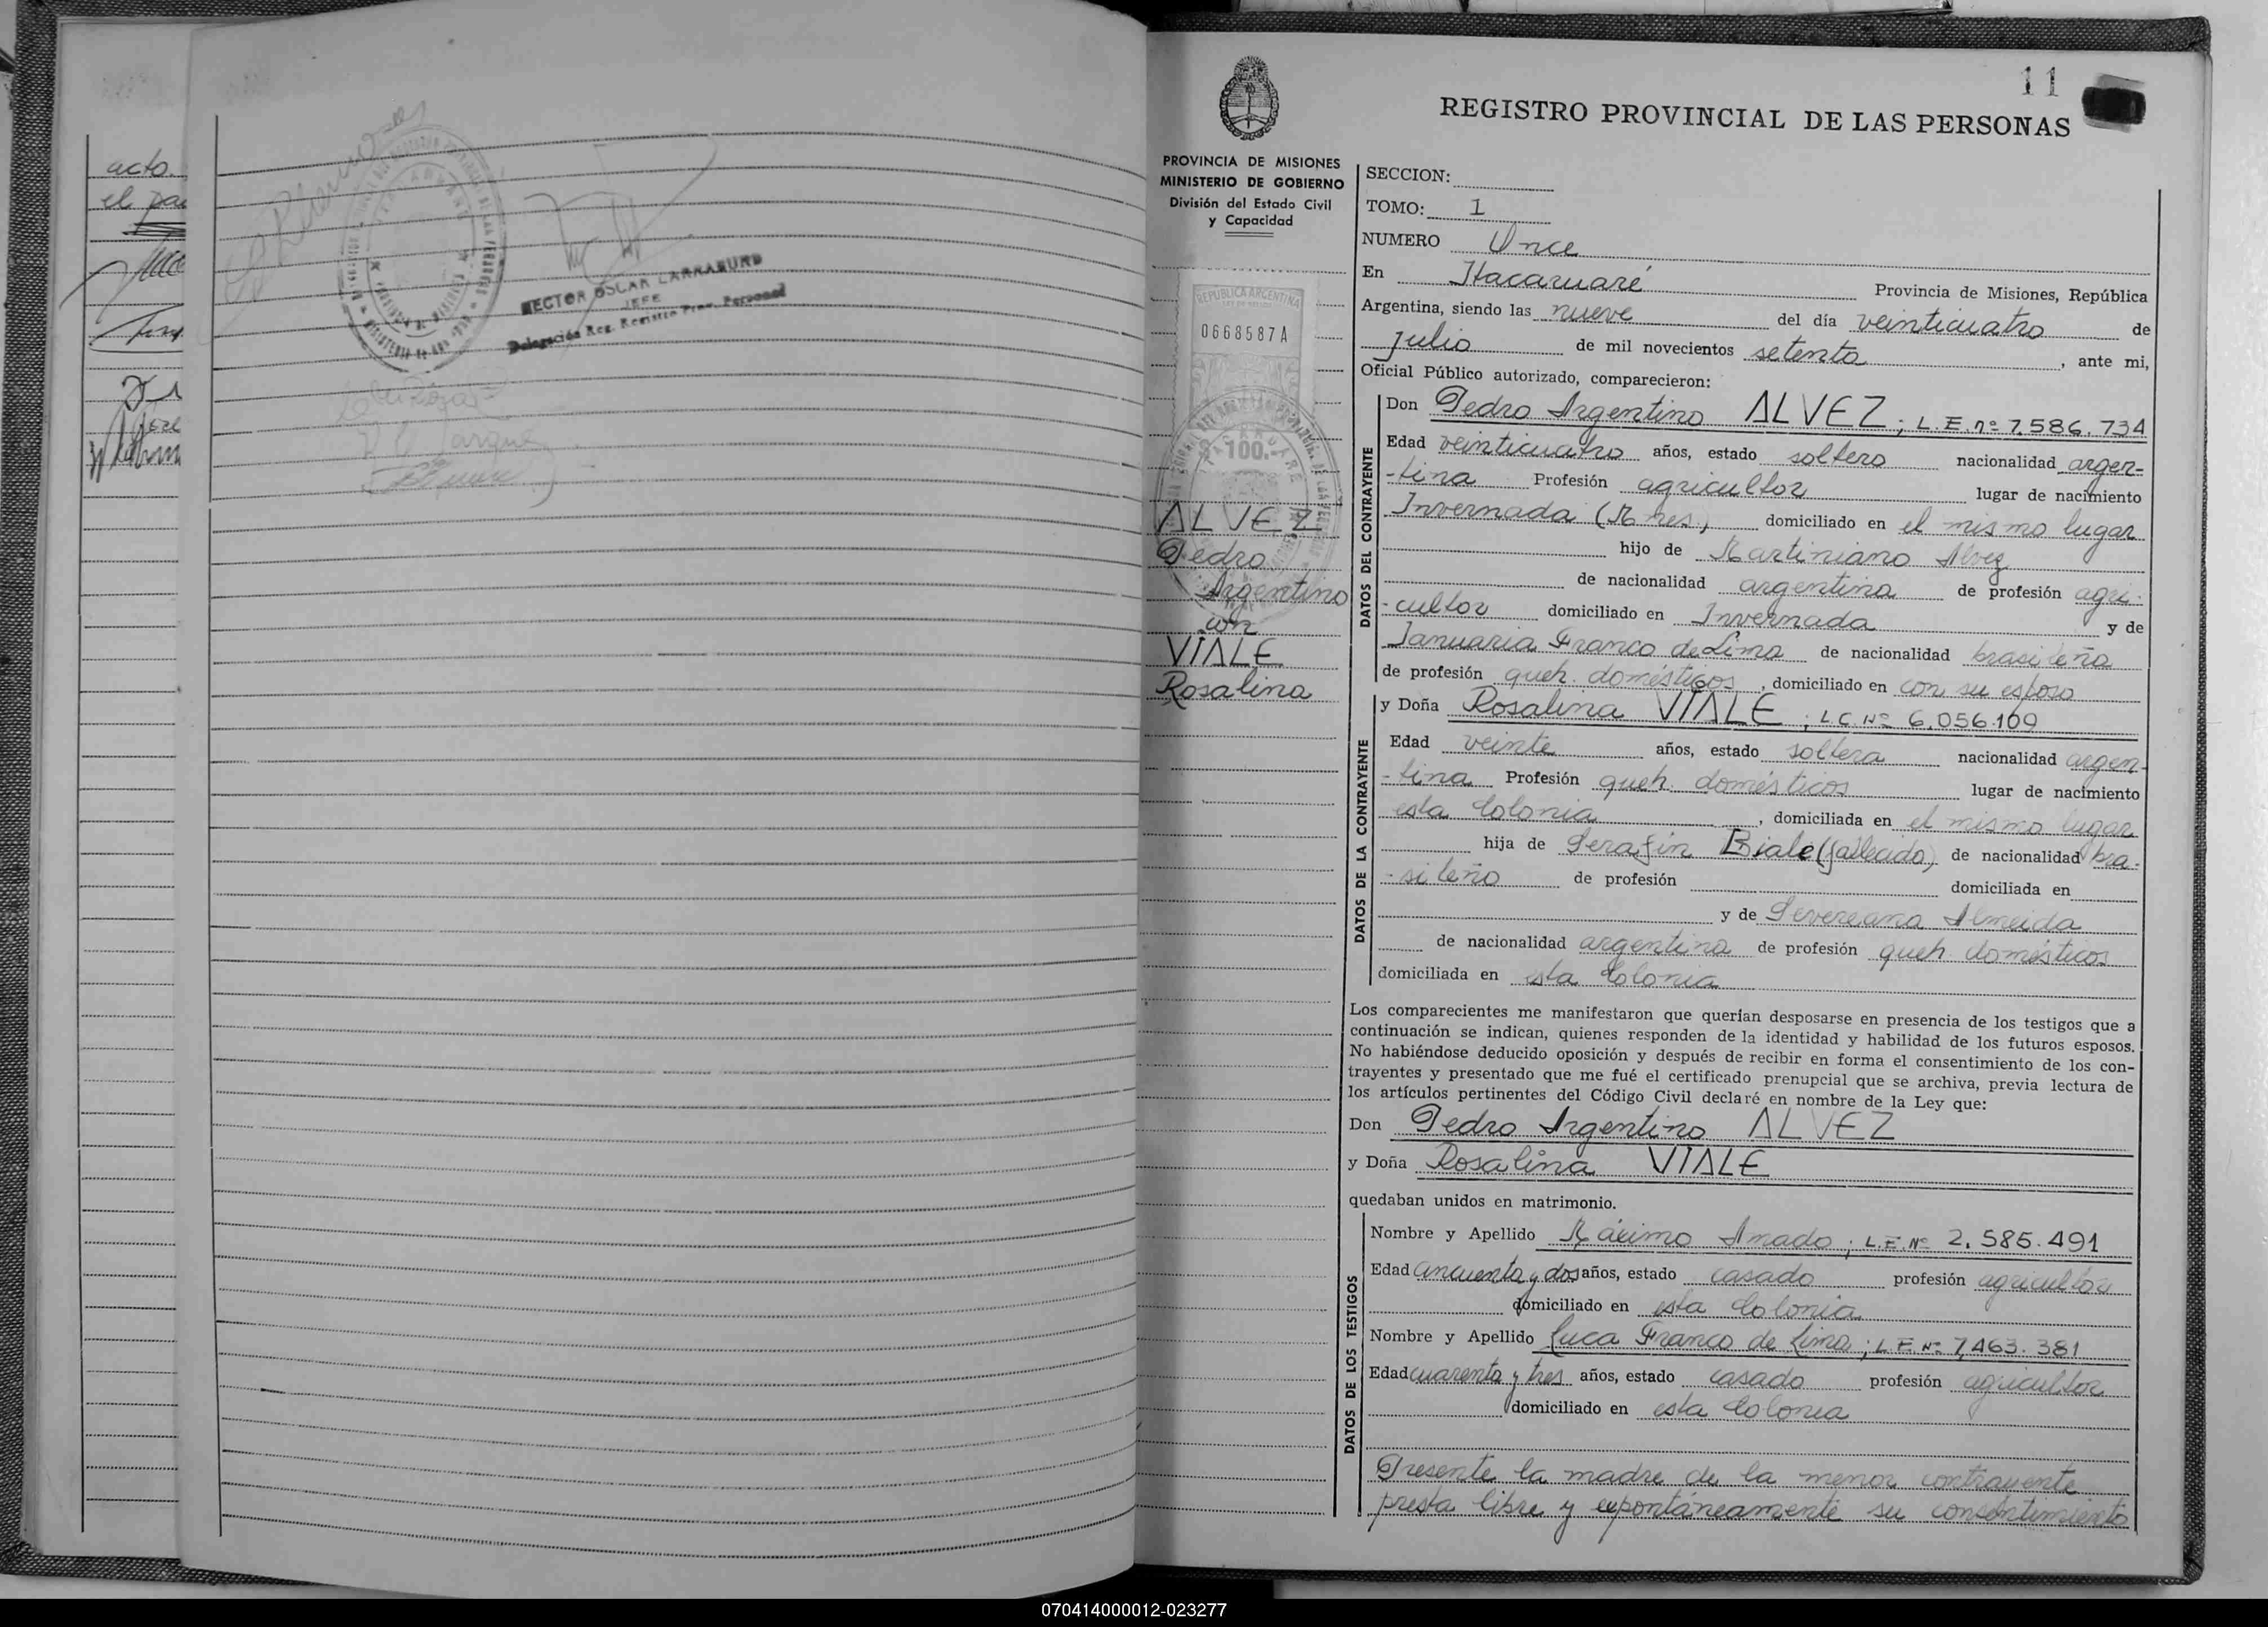 acto.
el pa
HECTOR OSCAR LARRABURU
JEFE
Delegación Reg. Registro Prov. Personal
11
REGISTRO PROVINCIAL DE LAS PERSONAS
PROVINCIA DE MISIONES
MINISTERIO DE GOBIERNO
División del Estado Civil
y Capacidad
REPUBLICA ARGENTINA
0668587A
100.-
ALVEZ
Pedro
Argentino
con
VIALE
Rosalina
SECCION:
TOMO: 1
NUMERO Once
En Itacaruaré Provincia de Misiones, República
Argentina, siendo las nueve del día veinticuatro de
julio de mil novecientos setenta, ante mi,
Oficial Público autorizado, comparecieron:
DATOS DEL CONTRAYENTE
Don Pedro Argentino ALVEZ; L.E. nº 7.586.734
Edad veinticuatro años, estado soltero nacionalidad argen-
-tina Profesión agricultor lugar de nacimiento
Invernada (Mnes) domiciliado en el mismo lugar
hijo de Martiniano Alvez
de nacionalidad argentina de profesión agri-
-cultor domiciliado en Invernada y de
Januaria Franco de Lima de nacionalidad brasileña
de profesión queh. domésticos, domiciliado en con su esposo
DATOS DE LA CONTRAYENTE
y Doña Rosalina VIALE; L.C. Nº 6.056.109
Edad veinte años, estado soltera nacionalidad argen-
-tina Profesión queh. domésticos lugar de nacimiento
esta Colonia, domiciliada en el mismo lugar
hija de Serafin Biale (fallecido) de nacionalidad bra-
-sileño de profesión domiciliada en
y de Severeana Almeida
de nacionalidad argentina de profesión queh. domésticos
domiciliada en esta Colonia
Los comparecientes me manifestaron que querían desposarse en presencia de los testigos que a
continuación se indican, quienes responden de la identidad y habilidad de los futuros esposos.
No habiéndose deducido oposición y después de recibir en forma el consentimiento de los con-
trayentes y presentado que me fué el certificado prenupcial que se archiva, previa lectura de
los artículos pertinentes del Código Civil declaré en nombre de la Ley que:
Don Pedro Argentino ALVEZ
y Doña Rosalina VIALE
quedaban unidos en matrimonio.
DATOS DE LOS TESTIGOS
Nombre y Apellido Máximo Amado; L.E. Nº 2.585.491
Edad cincuenta y dos años, estado casado profesión agricultor
domiciliado en esta Colonia
Nombre y Apellido Luca Franco de Lima; L.E. Nº 7,463.381
Edad cuarenta y tres años, estado casado profesión agricultor
domiciliado en esta Colonia
Presente la madre de la menor contrayente
presta libre y expontáneamente su consentimiento
070414000012-023277